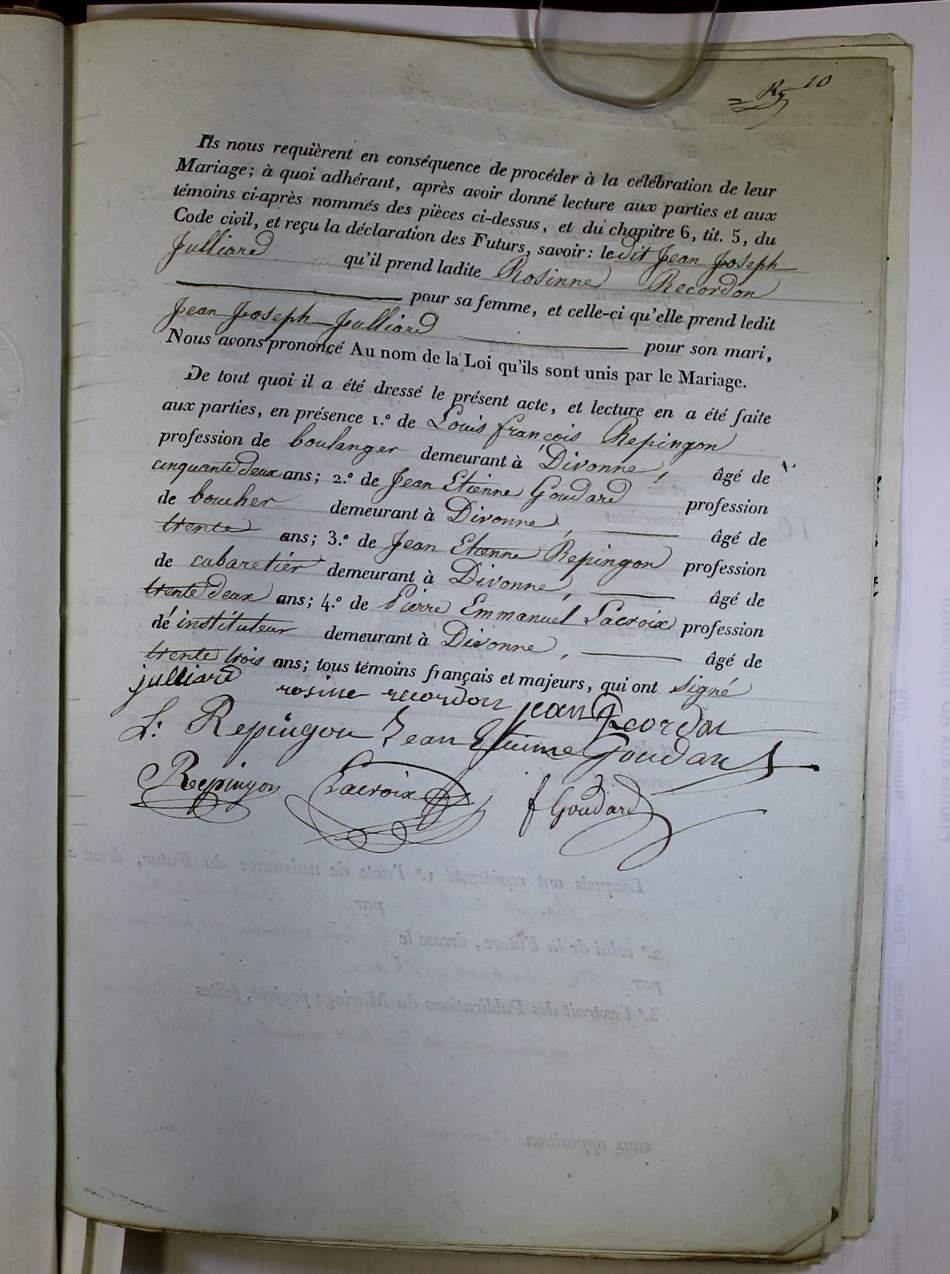 10
Ils nous requièrent en conséquence de procéder à la célébration de leur
Mariage; à quoi adhérant, après avoir donné lecture aux parties et aux
témoins ci-après nommés des pièces ci-dessus, et du chapitre 6, tit. 5, du
Code civil, et reçu la déclaration des Futurs, savoir: le dit Jean Joseph
Julliard qu'il prend ladite Rosinne Recordon
pour sa femme, et celle-ci qu'elle prend ledit
Jean Joseph Julliard pour son mari,
Nous avons prononcé Au nom de la Loi qu'ils sont unis par le Mariage.
De tout quoi il a été dressé le présent acte, et lecture en a été faite
aux parties, en présence 1.º de Louis françois Repingon
profession de boulanger demeurant à Divonne, âgé de
cinquante deux ans; 2.º de Jean Etienne Goudard profession
de boucher demeurant à Divonne, âgé de
trente ans; 3.º de Jean Etienne Repingon profession
de cabaretier demeurant à Divonne, âgé de
trente deux ans; 4.º de Pierre Emmanuel Lacroix profession
de instituteur demeurant à Divonne, âgé de
trente trois ans; tous témoins français et majeurs, qui ont signé
julliard rosine recordon jean Recordon
L: Repingon Jean Etienne Goudard
Repingon Lacroix f Goudard
Lesquels ont représenté 1.º l'acte de naissance du Futur, dressé
par
2.º celui de la Future, dressé le
par
3.º l'extrait des Publications du Mariage projeté, faites
sans opposition